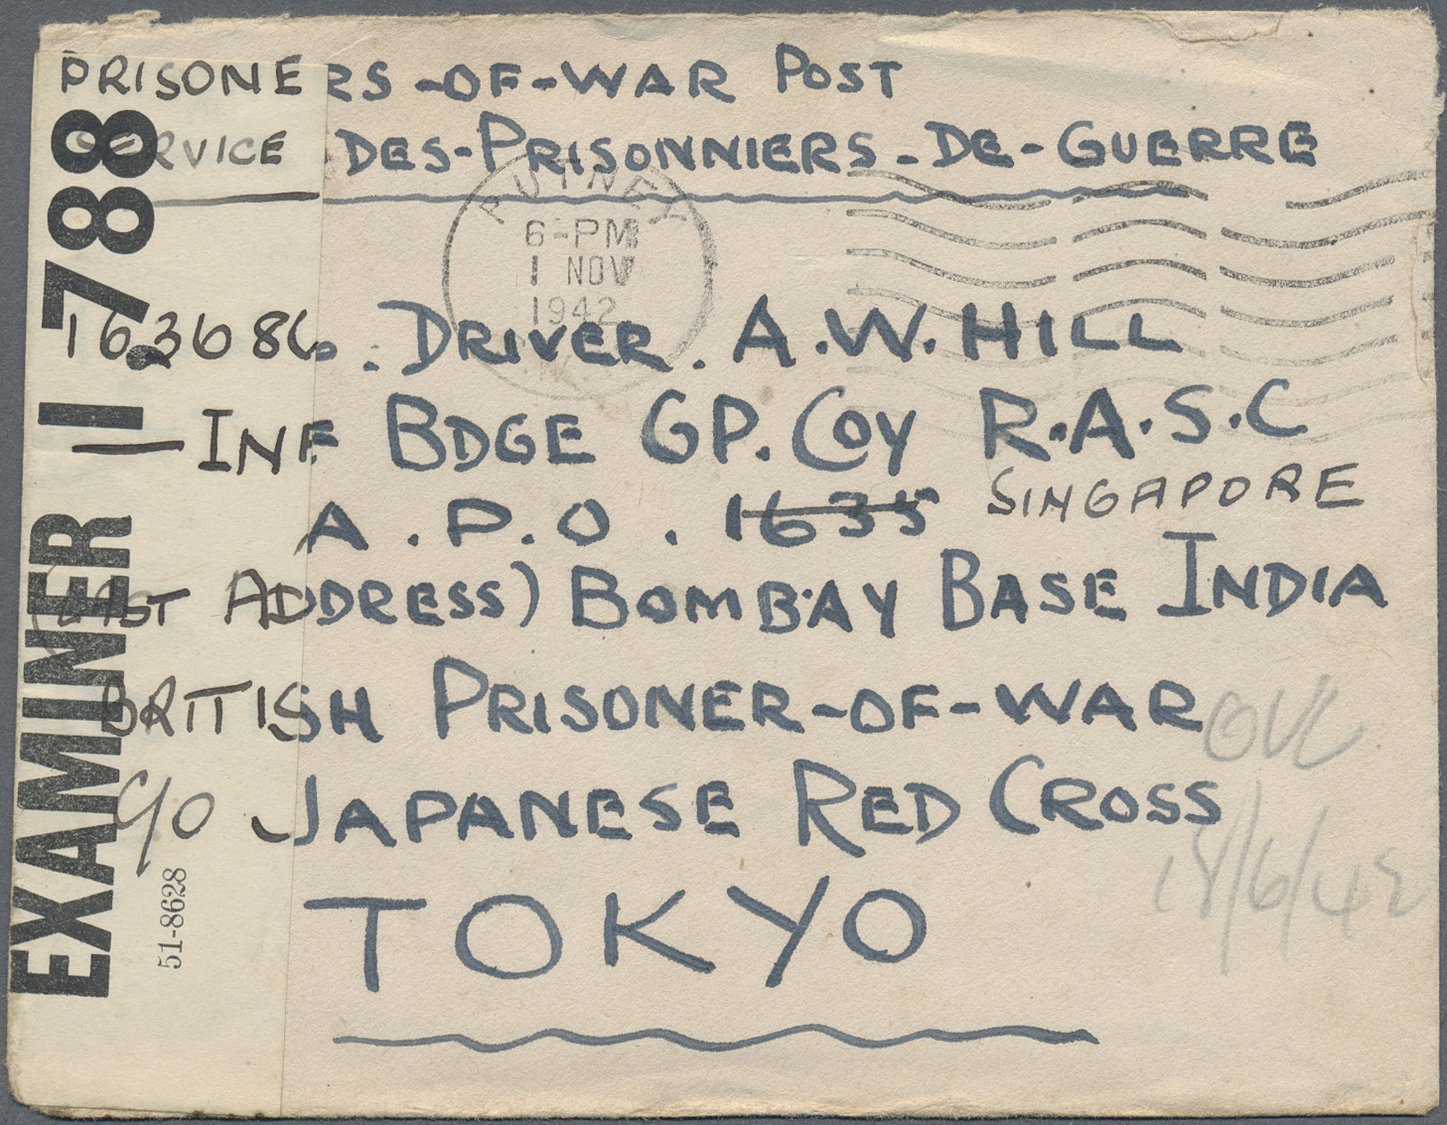 PRISONERS-OF-WAR POST
SERVICE-DES-PRISONNIERS-DE-GUERRE
PUTNEY
6-PM
1 NOV
1942
163686. DRIVER. A.W. HILL
INF BDGE GP. COY R.A.S.C
A.P.O. 1635 SINGAPORE
(LAST ADDRESS) BOMBAY BASE INDIA
BRITISH PRISONER-OF-WAR
C/O JAPANESE RED CROSS
TOKYO
EXAMINER 11,788
51-8628